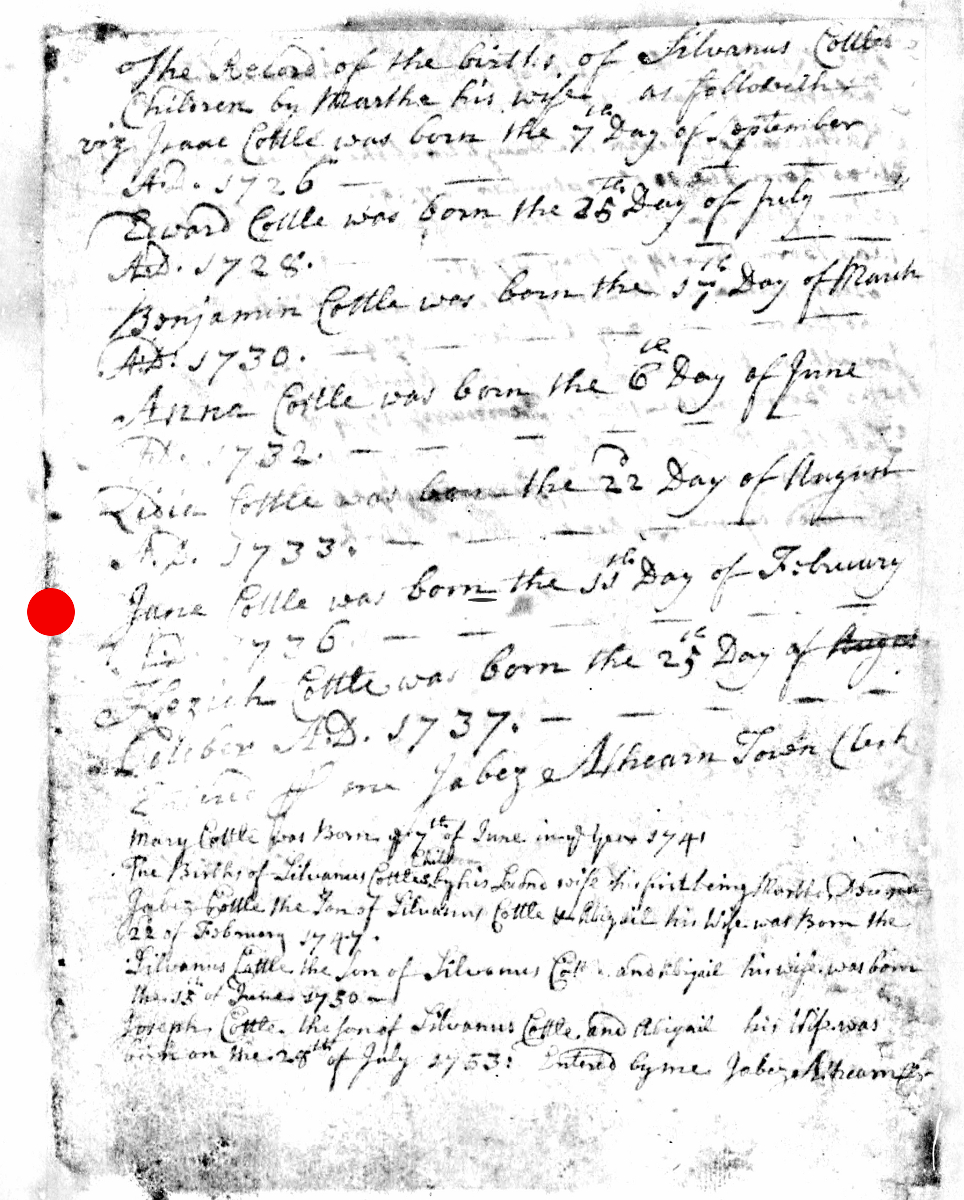 The Record of the births of Silvanus Cottles
Children by Martha his wife as followeth
viz Isaac Cottle was born the 7th Day of September
A.D. 1726
Edward Cottle was born the 25th Day of July
A.D. 1728.
Benjamin Cottle was born the 17th Day of March
A.D. 1730.
Anna Cottle was born the 6th Day of June
A.D. 1732.
Cottle was born the 22d Day of August
A.D. 1733.
Jane Cottle was born the 11th Day of February
A.D. 1736
Cottle was born the 25th Day of
October A.D. 1737.
Entered me Jabez Athearn Town Clerk
Mary Cottle was Born ye 7th of June in ye year 1741
The Births of Silvanus Cottles Children by his second wife his first being Martha
Jabez Cottle the Son of Silvanus Cottle & Abigail his Wife was Born the
22 of February 1747.
Silvanus Cottle the Son of Silvanus Cottle and Abigail his wife was born
the 15th of June 1750
Joseph Cottle the son of Silvanus Cottle and Abigail his Wife was
born on the 28th of July 1753: Entered by me Jabez Athearn